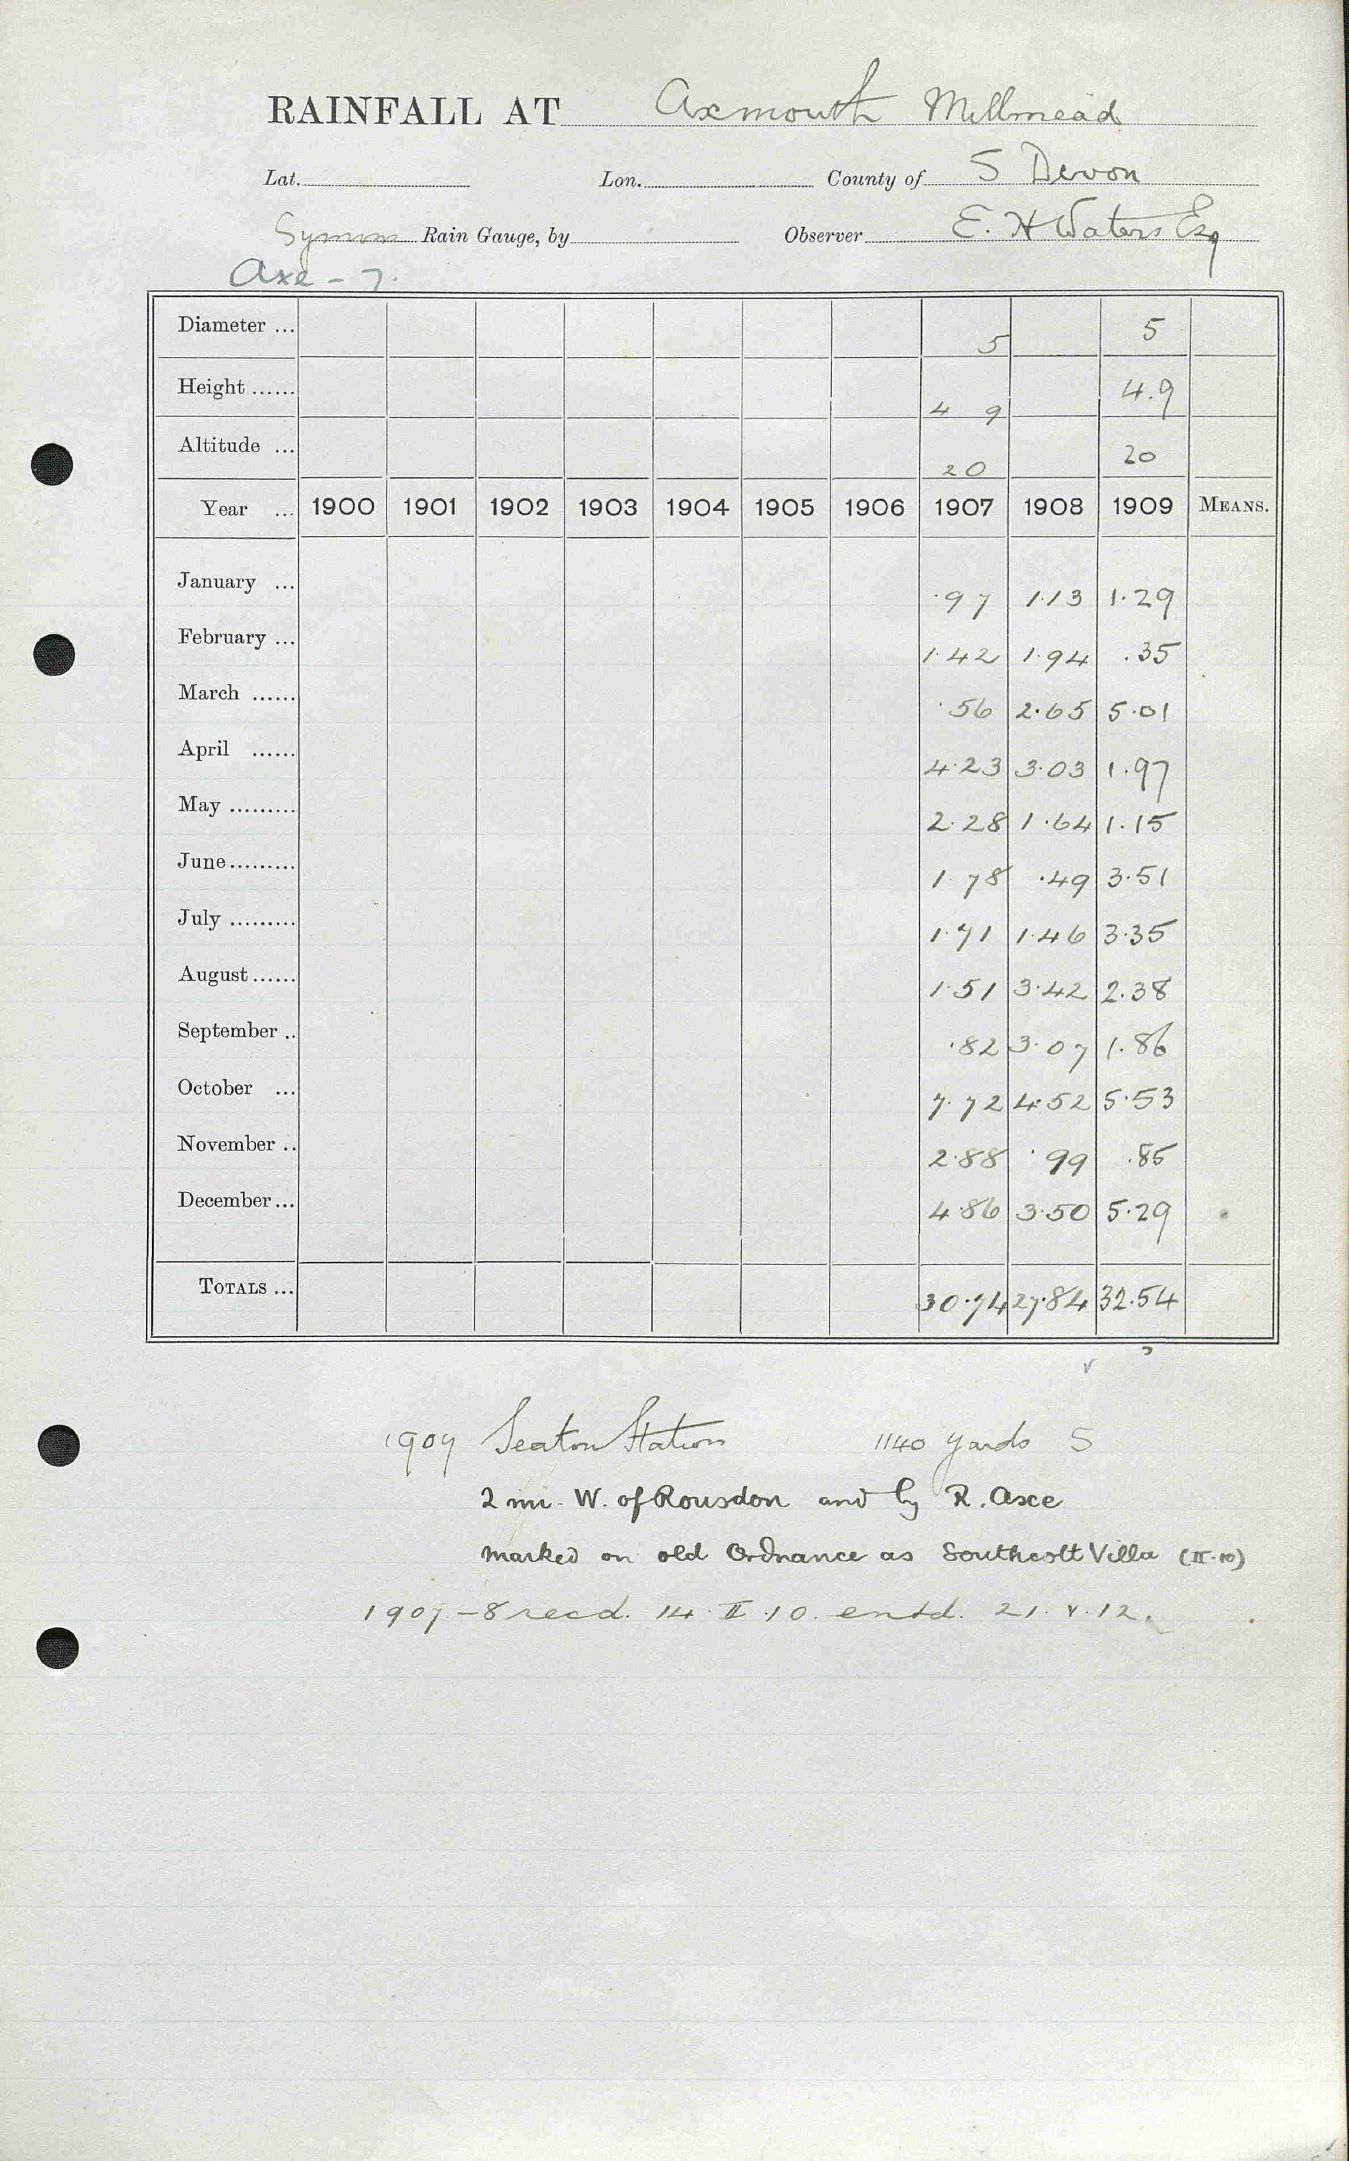 RAINFALL AT Axmouth Millmead
Lat. Lon. County of S Devon
Symons Rain Gauge, by Observer E. H Waters Esq
Axe - 7.
Diameter ... 5 5
Height ...... 4 9 4.9
Altitude ... 20 20
Year ... 1900 1901 1902 1903 1904 1905 1906 1907 1908 1909 MEANS.
January ... .97 1.13 1.29
February ... 1.42 1.94 .35
March ...... .56 2.65 5.01
April ...... 4.23 3.03 1.97
May ......... 2.28 1.64 1.15
June ......... 1.78 .49 3.51
July ......... 1.71 1.46 3.35
August ...... 1.51 3.42 2.38
September .. .82 3.07 1.86
October ... 7.72 4.52 5.53
November .. 2.88 .99 .85
December ... 4.86 3.50 5.29
TOTALS ... 30.74 27.84 32.54
1907 Seaton Station 1140 yards S
2 mi. W. of Rousdon and by R. Axe
marked on old Ordnance as Southcott Villa (II.10)
1907-8 recd. 14.II.10. entd. 21.V.12.